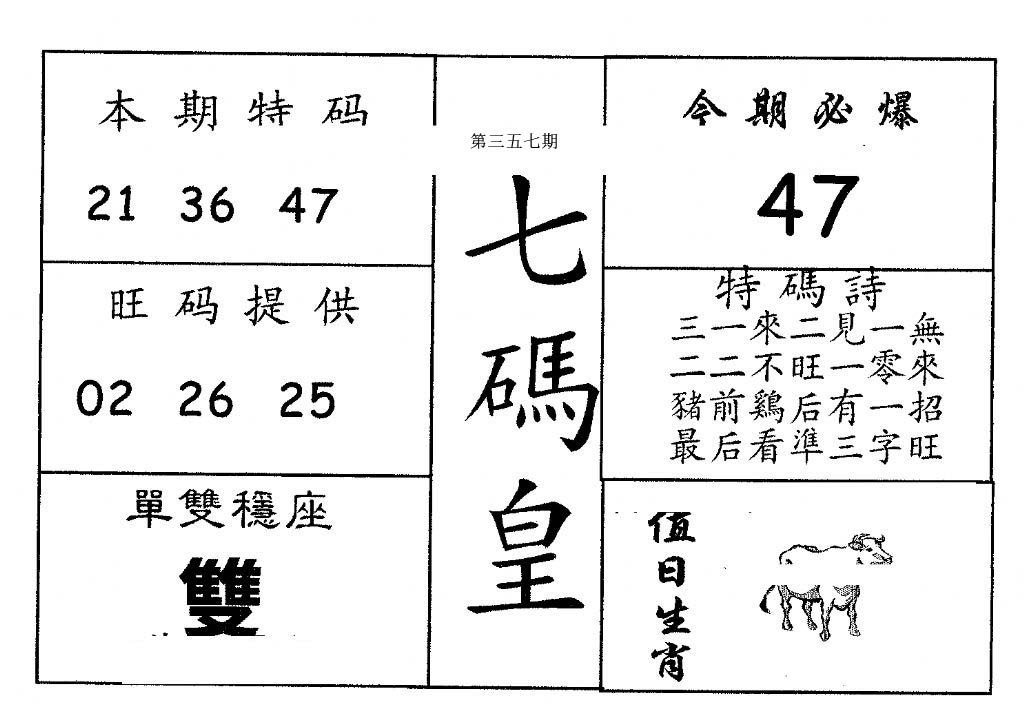 本期特码
21 36 47
旺码提供
02 26 25
單雙穩座
雙
第三五七期
七
碼
皇
今期必爆
47
特碼詩
三一來二見一無
二二不旺一零來
豬前鷄后有一招
最后看準三字旺
值
日
生
肖